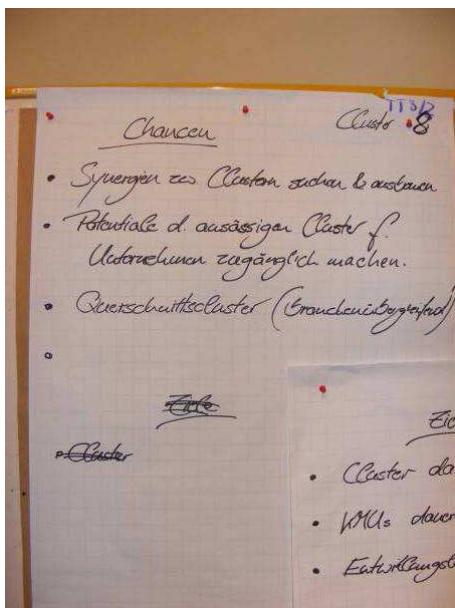 TT3/2
Chancen
Cluster 8
• Synergien zw Clustern suchen & ausbauen
• Potentiale d. ansässigen Cluster f.
Unternehmen zugänglich machen.
• Querschnittscluster (Branchenübergreifend)
Ziele
• Cluster
Zie
• Cluster da
• KMUs dauer
• Entwicklungst